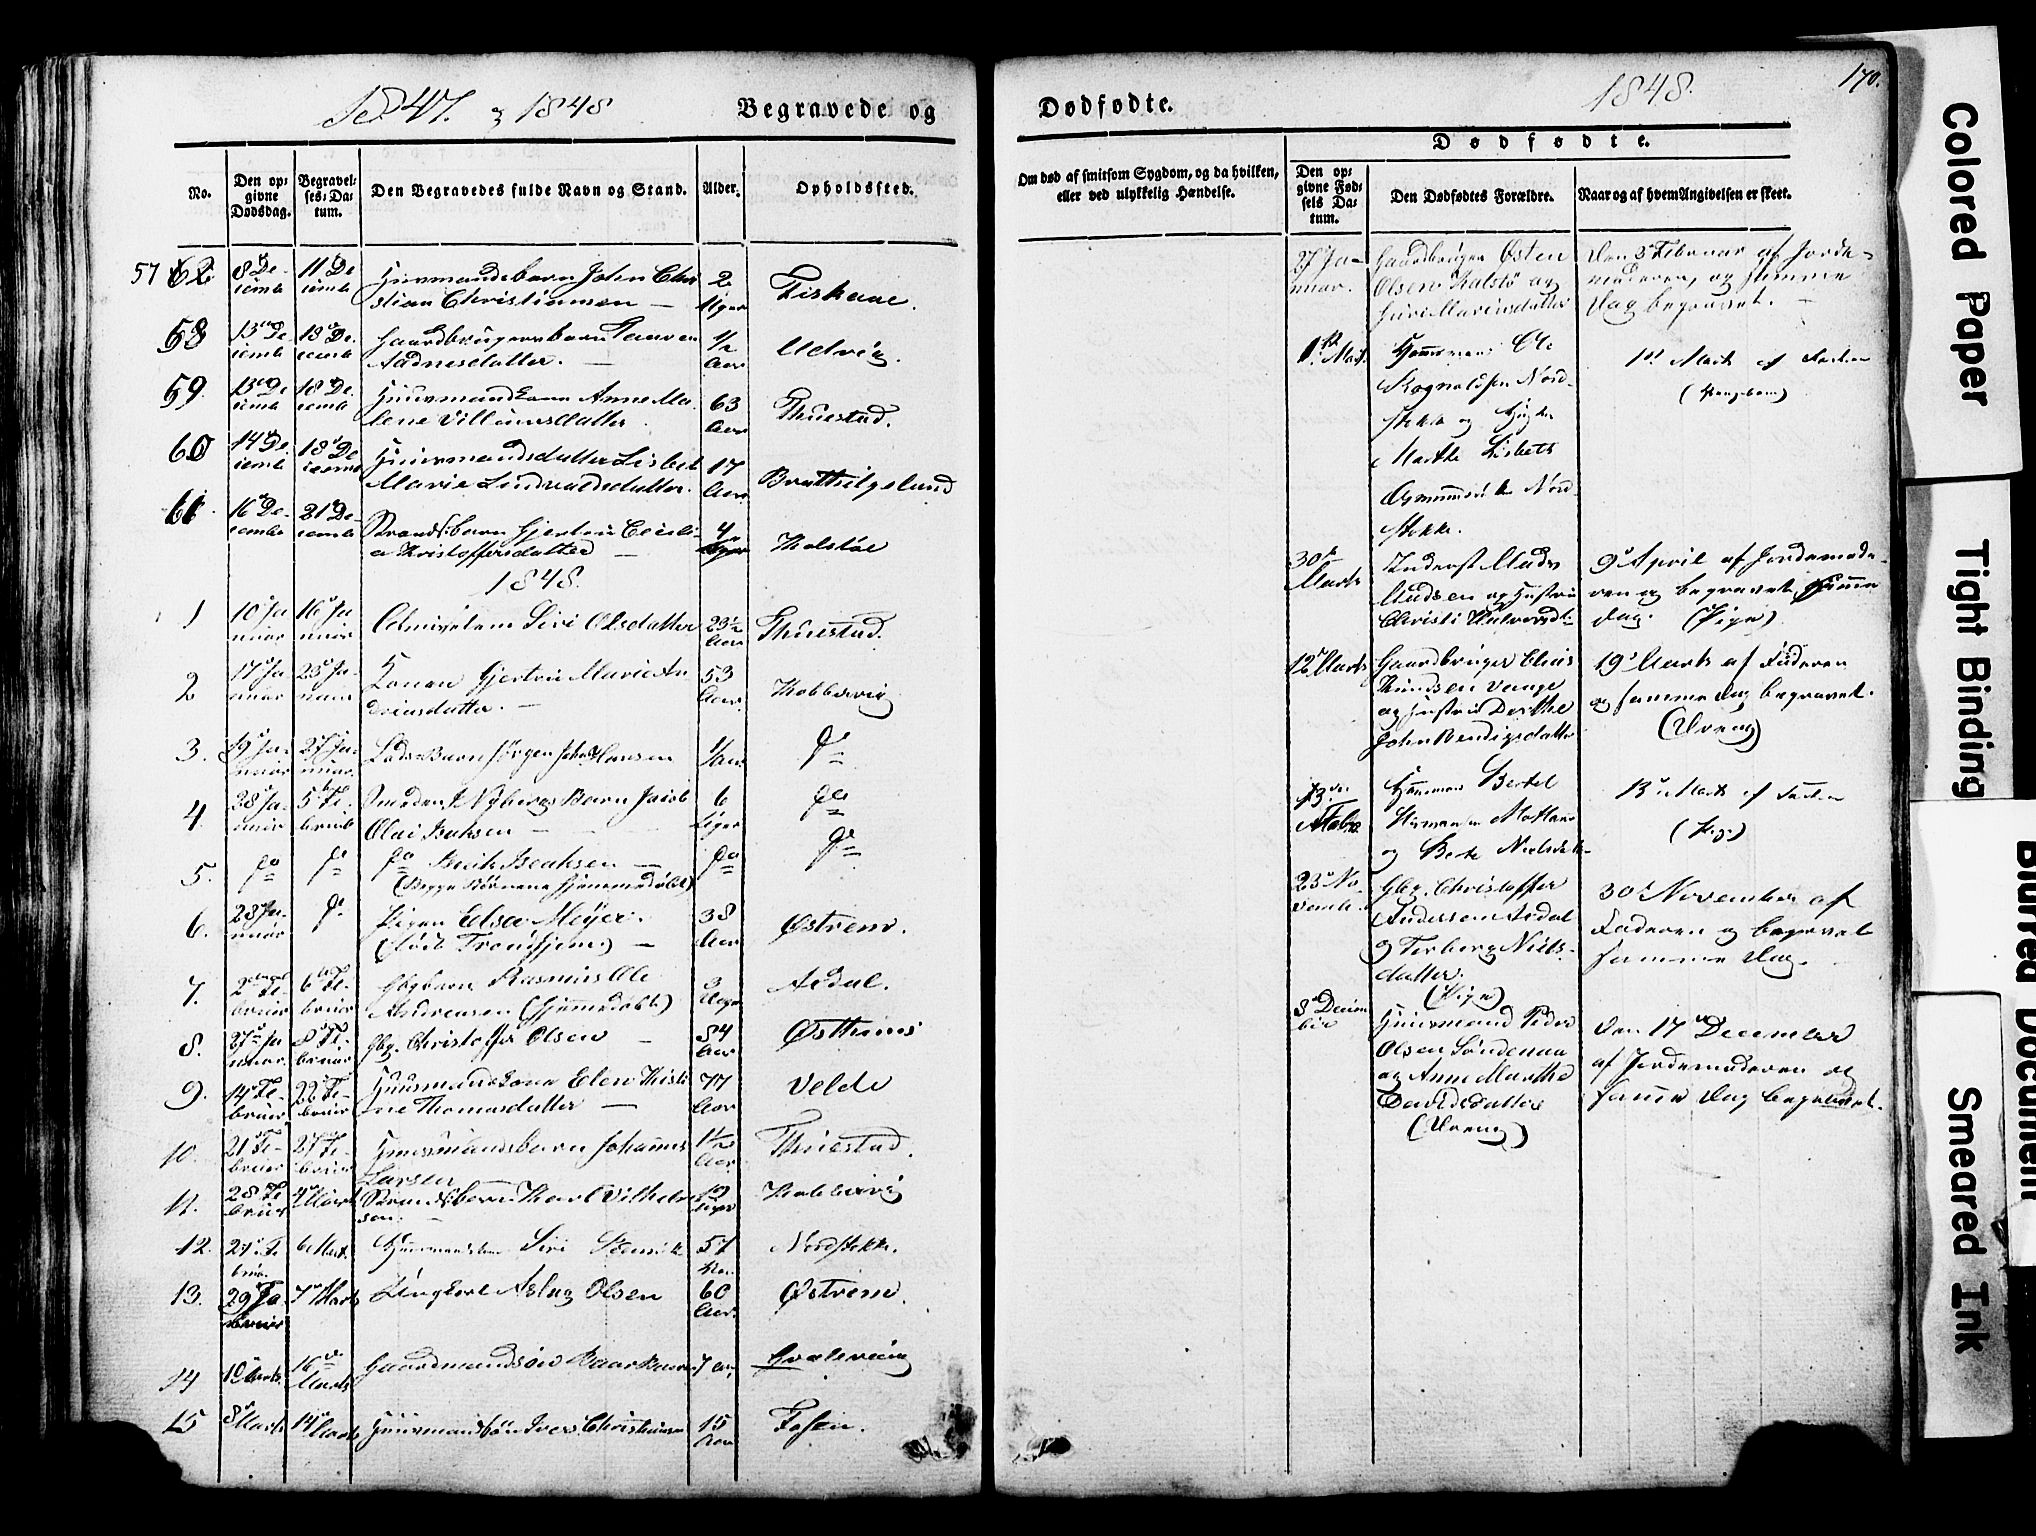 1847. & 1848
Begravede og
No.
Den op-
givne
Dødsdag.
Begravel-
ses-Da-
tum.
Den Begravedes fulde Navn og Stand.
Alder.
Opholdssted.
57 62
8 De-
cemb
11 De
cemb
Huusmandsbarn John Chri
stian Christiansen
2
Uger
Fiskaae.
58
13 De
cemb
18 De.
cemb
Gaardbrugerebarn
Aadnesdatter.
1/2
Aar
Udvig.
59.
13 De
cemb
18 De.
cemb
Huusmandkone Anne Ma-
lene Villumsdatter.
63
Aar
Thuestad.
60
14 De.
cemb
18 De
cemb
Huusmandsdatter Lisbet
Marie
17
Aar
Bratthelgeland
61
16 De-
cembr
21 De-
cemb
Strands.barn Gjertrü Cecili-
a Kristoffersdatter
4
Uger
Kolstøe
1848.
1
10 Ja
nuar
16 Ja
nuar
Almislem Siri Olsdatter
23 1/2
Aar
Thuestad.
2
17 Ja
nuar
23 Ja-
nuar
Konen Gjertru Marie An
driasdatter.
53
Aar.
Kobbervig
3.
19 Ja-
nuar
27 Ja-
nuar
Lods Barn Jørgen Johan Hansen
1/ Aar
do
4.
28 Ja
nuar
5 Fe-
bruar
Nyberg Barn Jacob
Olai Isaksen
6
Uger
do
5.
do
do
do Isaksen
(Begge Børnene hjemmedøbt)
do
do
6.
28 Ja-
nuar
do
Pigen Elsa Meyer.
(født Trondhjem)
38
Aar
Østrem.
7.
2 Fe-
bruar
6 Fe-
bruar
Gbgbarn Rasmus Ole
Andreasen (hjemmedøbt)
3
Uger
Aadal.
8.
27 Ja
nuar.
8 Fe-
bruar
Gbg. Christoffer Olsen
84
Aar
Østhuus
9.
14 Fe-
bruar
22 Fe-
bruar
Huusmandskone Elen Kristi
ne Thomasdatter
77
Aar
Velde
10.
21 Fe-
bruar
27 Fe-
bruar
Huusmandsbarn Johannes
Larsen
1 1/2
Aar.
Thuestad.
11.
28 Fe
bruar
4 Marts
Strands.barn Karl Vilhelm
sen.
Uger
Kobbervig
12.
27 Fe
bruar
6 Marts
Siri
57
Aar
Nordstokke.
13.
29 Ja
bruar
7 Marts
Ungkarl Aslag Olsen
60
Aar.
Østrem.
14
10 Marts.
16
Marts
Gaardmandsøn
7 Aar,
15
8 Marts
14 Marts
Huusmandssøn Iver Christiansen
15
Aar
Fosen.
Dødfødte.
1848.
170.
Om død af smitsom Sygdom, og da hvilken,
eller ved ulykkelig Hændelse.
Dødfødte.
Den op-
givne Fød-
sels Da-
tum.
Den Dødfødtes Forældre.
Naar og af hvem Angivelsen er skeet.
27 Ja-
nuar.
Gaardbruger Østen
Olsen Kalstø og
Siri Marinsdatter
Den 3 Februar af Jorde-
moderen, og samme
Dag begravet.
1. Mart.
Huusmand Ole
Rognaldsen Nord-
stokke og Hustru
Marthe Lisbeth
Nord-
stokke.
1st Marts af Faderen
(Drengebarn)
30
Marts
Inderst Mads
Madsen og Hustru
Christi Halvorsd.
9 April af Jordemode-
ren og begravet samme
Dag. (Pige)
12 Marts
Gaardbruger Elias
Knudsen Vange
og Hustru Dorthe
John Bendigsdatter
19 Marts af Faderen
og samme Dag begravet.
(Dreng)
13
Huusmand Bertel
og Berte Nielsdtr.
13 Marts af Faderen
(Pige)
23 No-
vemb.
Gbg. Christoffer
Andersen Aadal
og Torborg Niels-
datter.
(Pige)
30 November af
Faderen og begravet
samme Dag.
8 Decem
ber
Huusmand Peder
Olsen Søndenaa
og Anne Marthe
Davidsdatter
(Dreng)
Den 17 December
af Jordemoderen og
samme Dag begravet.
Colored Paper
Tight Binding
Blurred Document
Smeared Ink